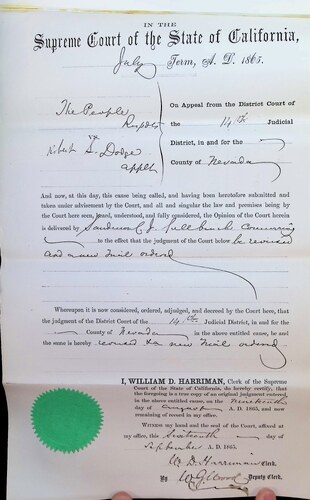 IN THE
Supreme Court of the State of California,
July Term, A. D. 1865.
The People
Respdts
vs.
Robert S. Dodge
applt
On Appeal from the District Court of
the 14th Judicial
District, in and for the
County of Nevada
And now, at this day, this cause being called, and having been heretofore submitted and
taken under advisement by the Court, and all and singular the law and premises being by
the Court here seen, heard, understood, and fully considered, the Opinion of the Court herein
is delivered by Sanderson C. J. full bench concurring
to the effect that the judgment of the Court below be reversed
and a new trial ordered
Whereupon it is now considered, ordered, adjudged, and decreed by the Court here, that
the judgment of the District Court of the 14th Judicial District, in and for the
County of Nevada in the above entitled cause, be and
the same is hereby reversed & a new trial ordered
I, WILLIAM D. HARRIMAN, Clerk of the Supreme
Court of the State of California, do hereby certify, that
the foregoing is a true copy of an original judgment entered,
in the above entitled cause, on the
day of August A. D. 1865, and now
remaining of record in my office.
Witness my hand and the seal of the Court, affixed at
my office, this Sixteenth day of
September A. D. 1865.
W. D. Harriman Clerk.
By Deputy Clerk.